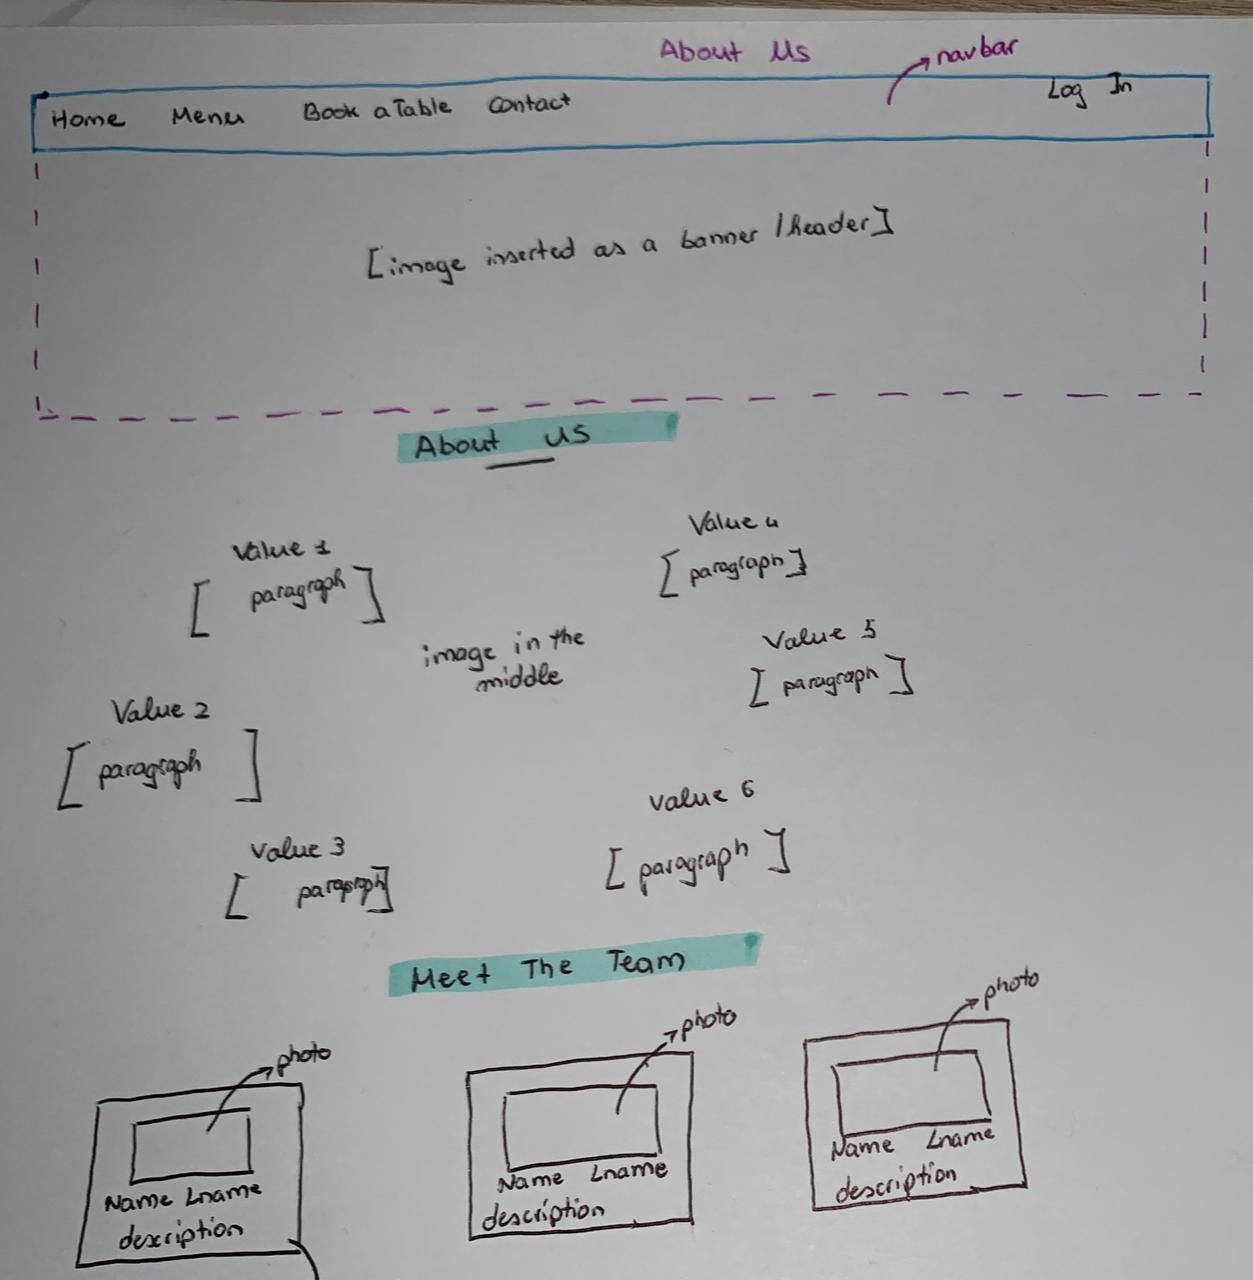 About Us
navbar
Home Menu Book a Table Contact Log In
[image inserted as a banner / header]
About us
Value 1
[paragraph]
Value 4
[paragraph]
image in the
middle
Value 5
[paragraph]
Value 2
[paragraph]
Value 3
[paragraph]
Value 6
[paragraph]
Meet The Team
photo
Name Lname
description
photo
Name Lname
description
photo
Name Lname
description